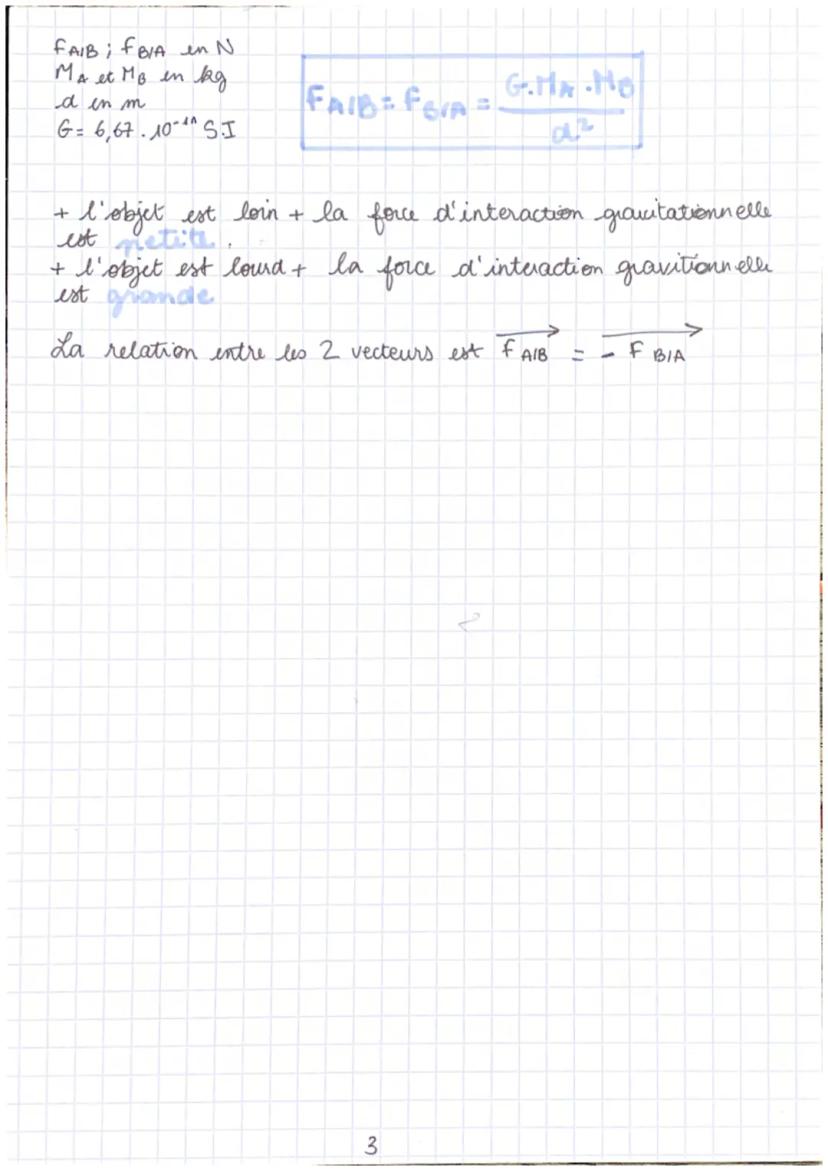 FA/B ; FB/A en N
MA et MB en kg
d en m
G = 6,67 . 10⁻¹¹ S.I
FA/B = FB/A = G.MA.MB / d²
+ l'objet est loin + la force d'interaction gravitationnelle
est petite.
+ l'objet est lourd + la force d'interaction gravitionnelle
est grande
La relation entre les 2 vecteurs est F A/B = - F B/A
3